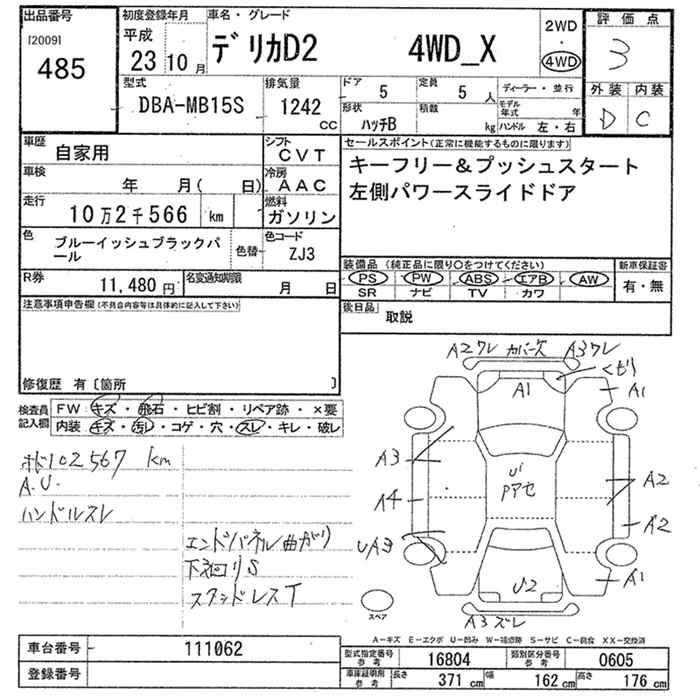 出品番号
[2009]
485
初度登録年月
平成
23 10 月
車名・グレード
デリカD2 4WD_X
2WD
・
4WD
評価点
3
外装 内装
D C
型式
DBA-MB15S
排気量
1242
cc
ドア
5
定員
5 人
形状
ハッチB
積数
kg
ディーラー・並行
モデル年式 年
ハンドル 左・右
車歴
自家用
シフト
CVT
車検
年 月( 日)
冷房
AAC
走行
10万2千566 km
燃料
ガソリン
色
ブルーイッシュブラックパール
色替
色コード
ZJ3
R券
11,480 円
名変通知期限
月 日
セールスポイント(正常に機能するものに限ります)
キーフリー&プッシュスタート
左側パワースライドドア
装備品 (純正品に限り○をつけてください)
PS PW ABS エアB AW
SR ナビ TV カワ
新車保証書
有・無
後日品
取説
注意事項申告欄(不具合内容等は具体的に記入して下さい)
修復歴 有〔箇所 〕
検査員記入欄
FW:キズ・飛石・ヒビ割・リペア跡・×要
内装:キズ・汚レ・コゲ・穴・スレ・キレ・破レ
ホド102567 km
A.U.
ハンドルスレ
エンドパネル曲がり
下廻りS
スタッドレスT
A2ワレ カバー欠 A3ワレ
くもり
A1
A1
A3
A4
UA3
U1
Pアセ
A2
A2
A1
U2
A3ズレ
スペア
A-キズ E-エクボ U-凹み W-補修跡 S-サビ C-腐食 XX-交換済
車台番号
111062
登録番号
型式指定番号
参考
16804
類別区分番号
参考
0605
車庫証明用
参考
長さ
371 cm
幅
162 cm
高さ
176 cm